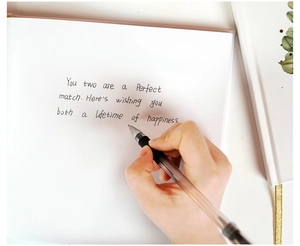 You two are a Perfect
match. Here's wishing you
both a lifetime of happiness